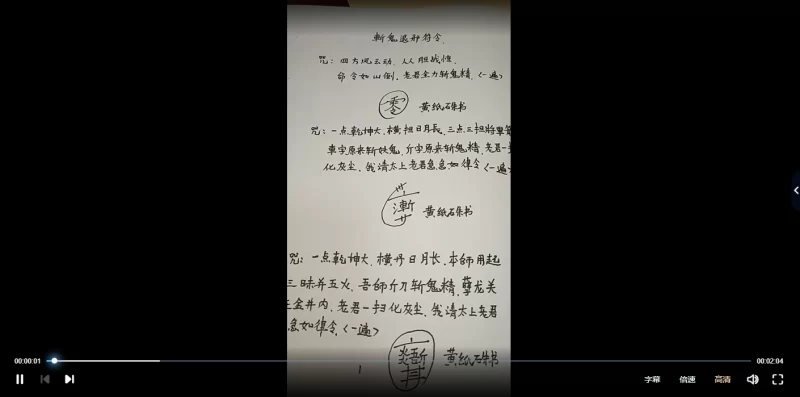 斩鬼退邪符令
咒：四方风云动，人人胆战惊
命令如山倒，老君全力斩鬼精，（一遍）
零 黄纸石朱书
咒：一点乾坤大，横担日月長，三点三担將
車字原来斩妖鬼，斤字原来斩鬼精，老君一
化灰尘，我请太上老君急急如律令（一遍）
黄纸石朱书
咒：一点乾坤大，横丹日月长，本師用起
三昧并五火，吾師斤刀斩鬼精，孽龙关
金井内，老君一扫化灰尘，我请太上老君
急如律令，（一遍）
黄纸石朱书
00:00:01
00:02:04
字幕
倍速
高清